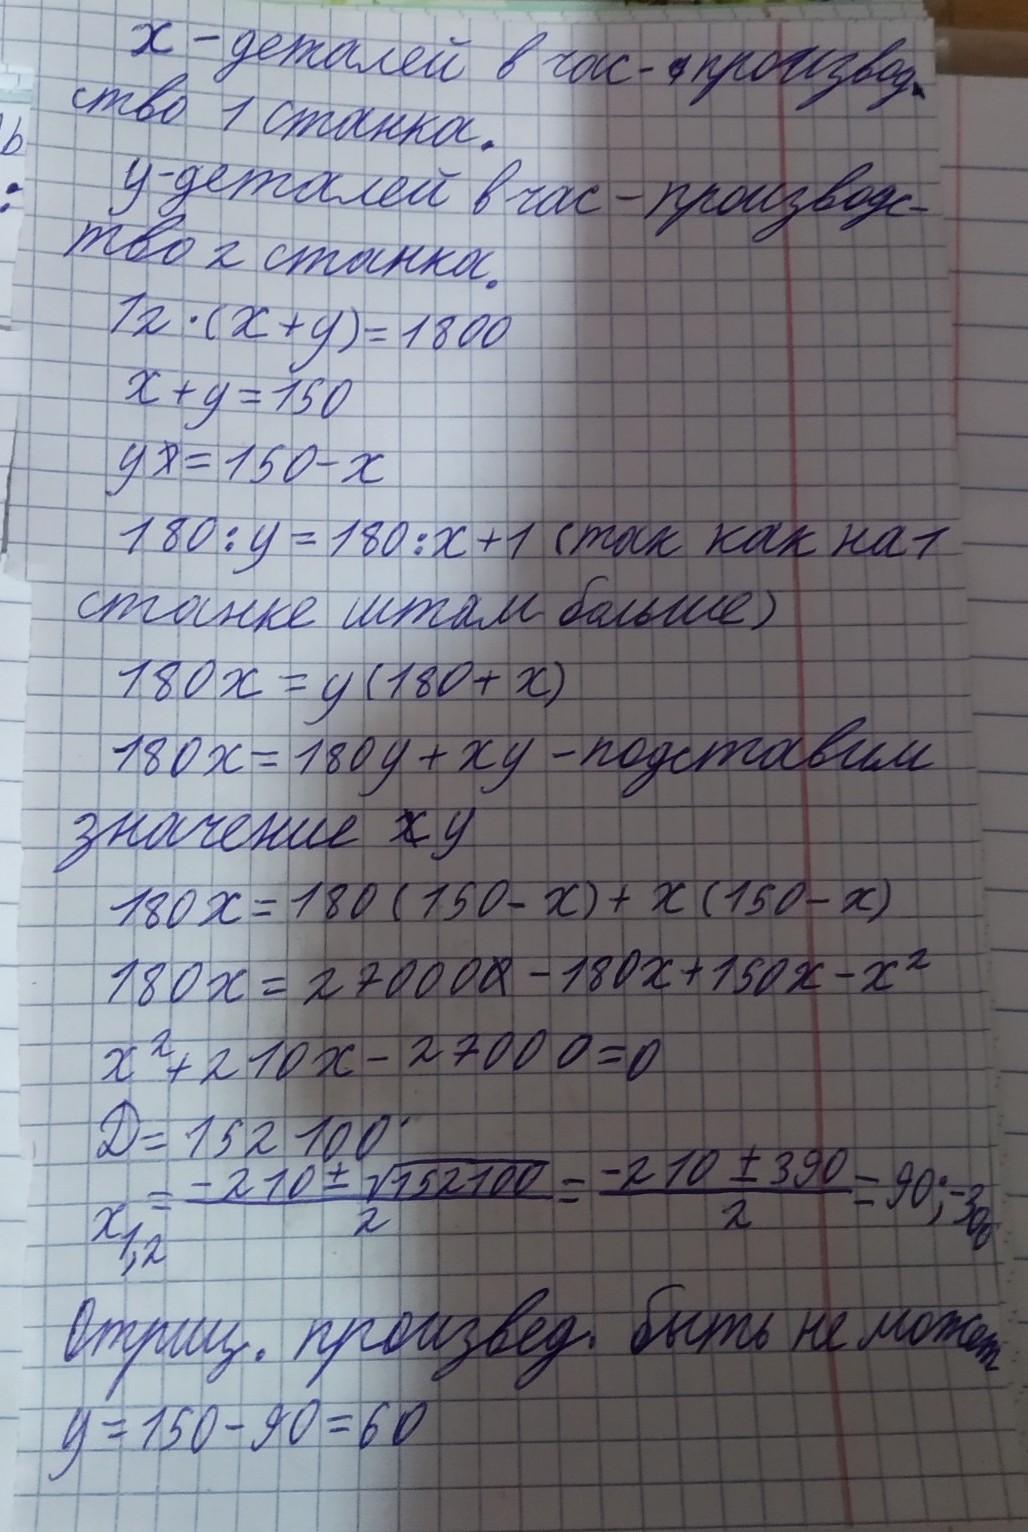 x - деталей в час - производ.
ство 1 станка.
y - деталей в час - производс-
тво 2 станка.
12 · (x + y) = 1800
x + y = 150
y = 150 - x
180 : y = 180 : x + 1 (так как на 1
станке штам больше)
180x = y (180 + x)
180x = 180y + xy - подставим
значение y
180x = 180 (150 - x) + x (150 - x)
180x = 27000 - 180x + 150x - x²
x² + 210x - 27000 = 0
D = 152 100
x₁,₂ = (-210 ± √152100) / 2 = (-210 ± 390) / 2 = 90; -300
Отриц. произвед. быть не может
y = 150 - 90 = 60